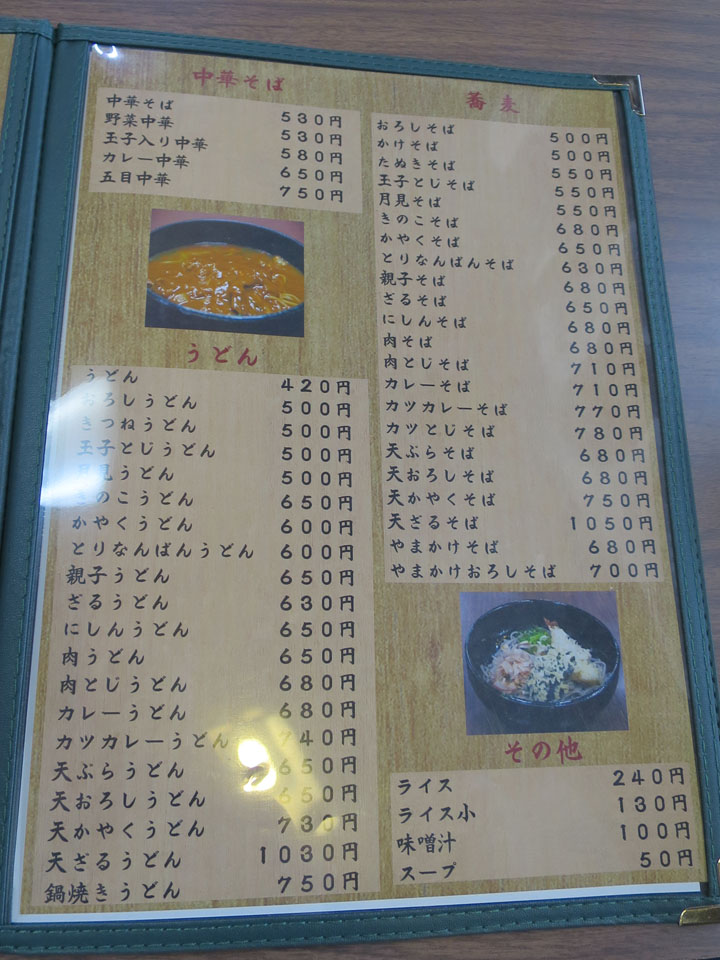 中華そば
中華そば 530円
野菜中華 530円
玉子入り中華 580円
カレー中華 650円
五目中華 750円
うどん
うどん 420円
おろしうどん 500円
きつねうどん 500円
玉子とじうどん 500円
月見うどん 500円
きのこうどん 650円
かやくうどん 600円
とりなんばんうどん 600円
親子うどん 650円
ざるうどん 630円
にしんうどん 650円
肉うどん 650円
肉とじうどん 680円
カレーうどん 680円
カツカレーうどん 740円
天ぷらうどん 650円
天おろしうどん 650円
天かやくうどん 730円
天ざるうどん 1030円
鍋焼きうどん 750円
蕎麦
おろしそば 500円
かけそば 500円
たぬきそば 550円
玉子とじそば 550円
月見そば 550円
きのこそば 680円
かやくそば 650円
とりなんばんそば 630円
親子そば 680円
ざるそば 650円
にしんそば 680円
肉そば 680円
肉とじそば 710円
カレーそば 710円
カツカレーそば 770円
カツとじそば 780円
天ぷらそば 680円
天おろしそば 680円
天かやくそば 750円
天ざるそば 1050円
やまかけそば 680円
やまかけおろしそば 700円
その他
ライス 240円
ライス小 130円
味噌汁 100円
スープ 50円